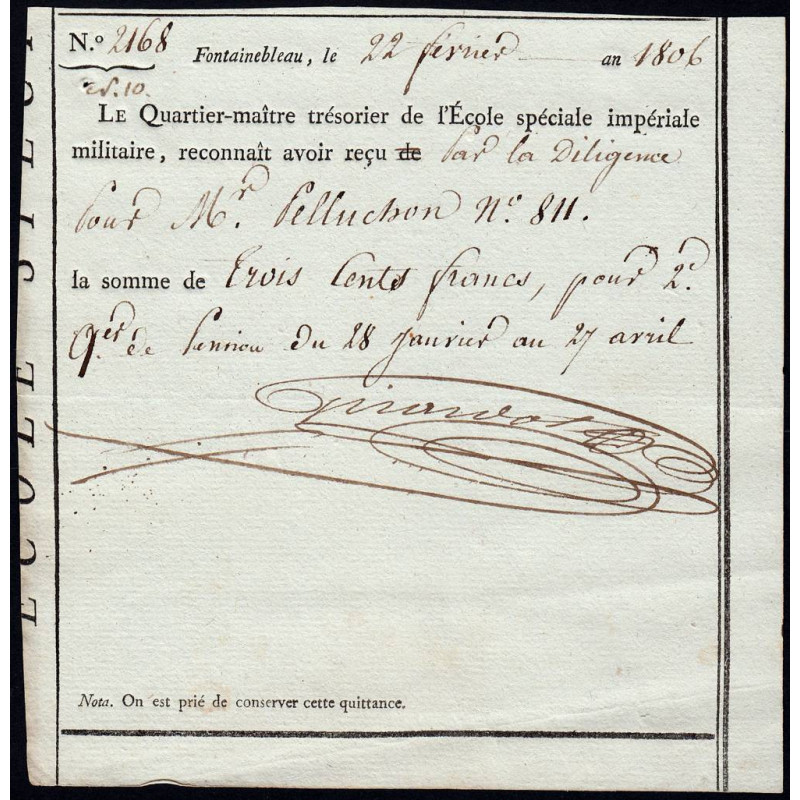 N.º 2168
Fontainebleau, le 22 février an 1806
LE Quartier-maître trésorier de l'École spéciale impériale
militaire, reconnaît avoir reçu de par la Diligence
pour Mr. Pelluchon Nº. 811.
la somme de trois Cents francs, pour 2e.
qer de Pension du 28 janvier au 27 avril
Nota. On est prié de conserver cette quittance.
ÉCOLE SPÉCI